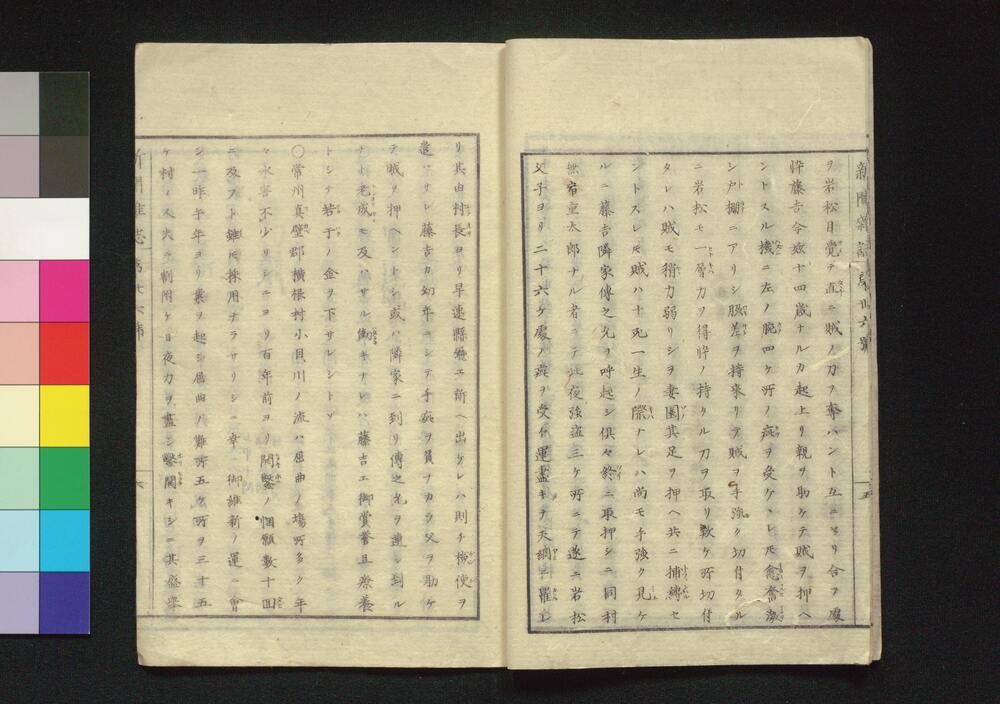 新聞雑誌第卅六號
ヲ岩松目覺テ直ニ賊ノ刀ヲ奪ハント互ニセリ合フ處
忰藤吉今茲十四歳ナルカ起上リ親ヲ助ケテ賊ヲ押ヘ
ントスル機ニ左ノ腕四ケ所ノ疵ヲ受ケヽレ𪜈愈奮激
シ戸棚ニアリシ脇差ヲ持来リテ賊ヲ手強ク切付タル
ニ岩松モ一層力ヲ得忰ノ持タル刀ヲ取リ數ケ所切付
タレハ賊モ稍力弱リシヲ妻園其足ヲ押ヘ共ニ捕縛セ
ントスレ𪜈賊ハ十死一生ノ際ナレハ尚モ手強ク見ケ
ルニ藤吉隣家傳之允ヲ呼起シ倶々終ニ取押シニ同村
無宿重太郎ナル者ニテ此夜強盗三ケ所ニテ遂ニ岩松
父子ヨリ二十六ケ處ノ疵ヲ受ケ運盡キテ天網ニ罹レ
五
リ其由村長ヨリ早速縣廳エ訴ヘ出ケレハ則チ檢使ヲ
遣ハサレ藤吉カ幼年ニシテ手疵ヲ負ナカラ父ヲ助ケ
テ賊ヲ押ヘントシ或ハ隣家ニ到リ傳之允ヲ連レ到ル
ナト老成モ及ハサル働キナレハ藤吉エ御賞誉且療養
トシテ若干ノ金ヲ下サレシトゾ
○常州真壁郡横根村小貝川ノ流ハ屈曲ノ場所多ク年
々水害不少リシニヨリ百年前ヨリ開鑿ノ悃願數十回
ニ及フト雖𪜈採用ナラサリシニ幸ニ御維新ノ運ニ會
シ一昨午年ヨリ業ヲ起シ屈曲ノ難所五ケ所ヲ三十五
ケ村ノ人夫ニ割附ケ日夜力ヲ盡シ鑿開キシニ其癈業
六